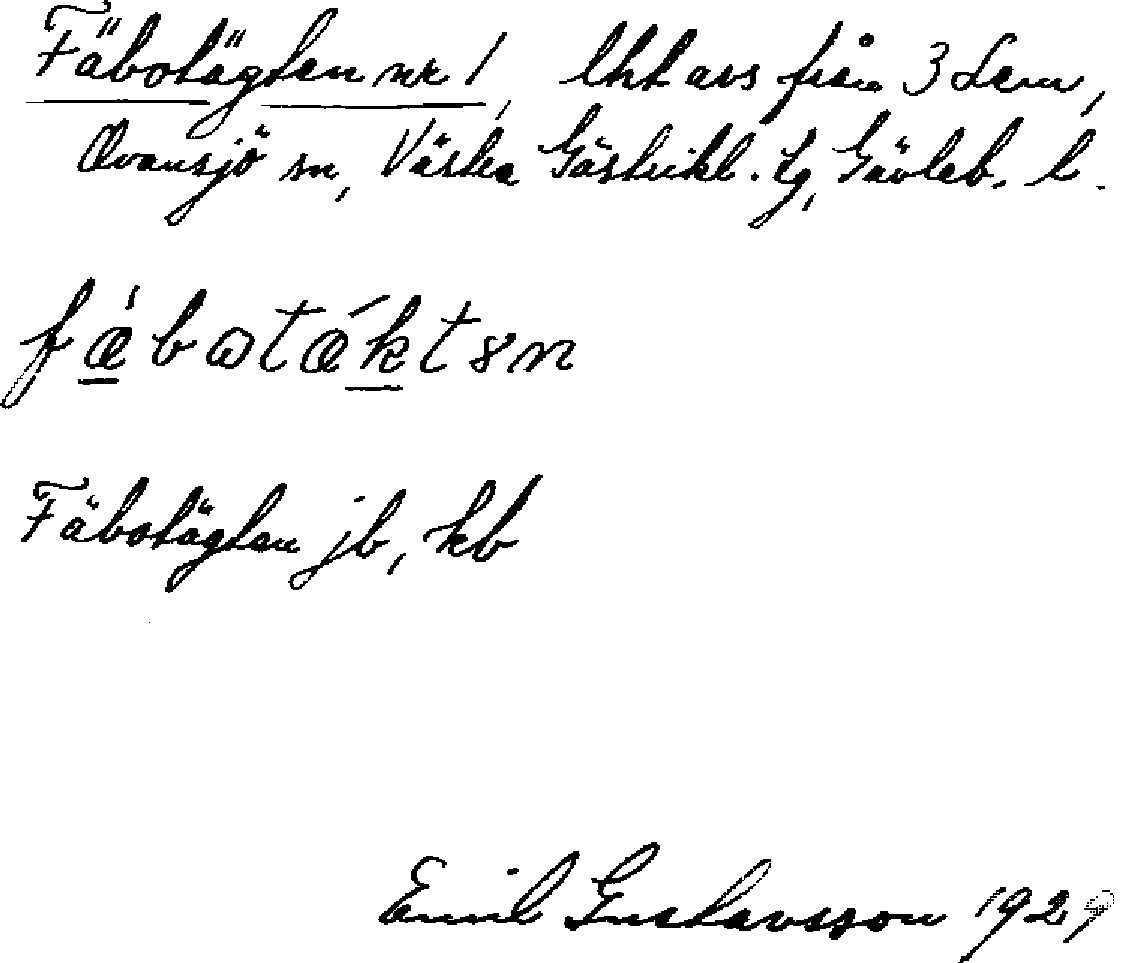 Fäbotägten nr 1, lht avs från 3 Lem,
Ovansjö sn, Västra Gästrikl. tg, Gävleb. l.
fǽbωtǽktən
Fäbotägten jb, kb
Emil Gustavsson 1929